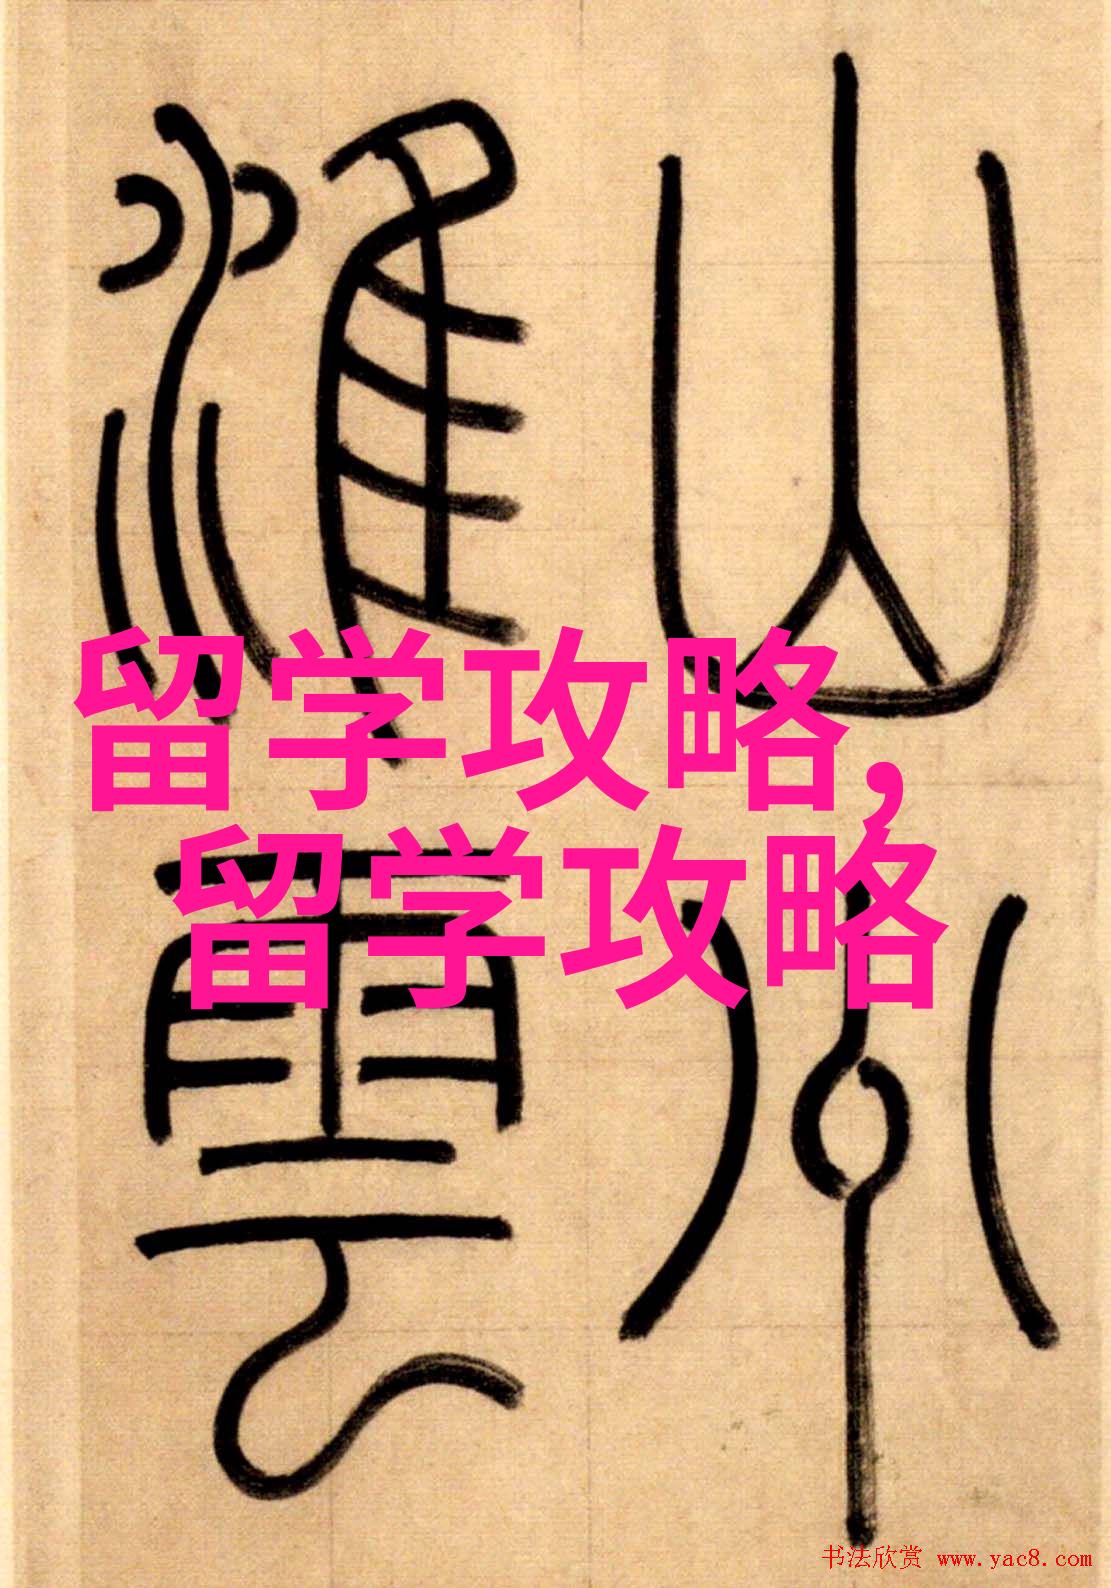 山
淮雲
留学攻略,
留学攻略
书法欣赏 www.yac8.com